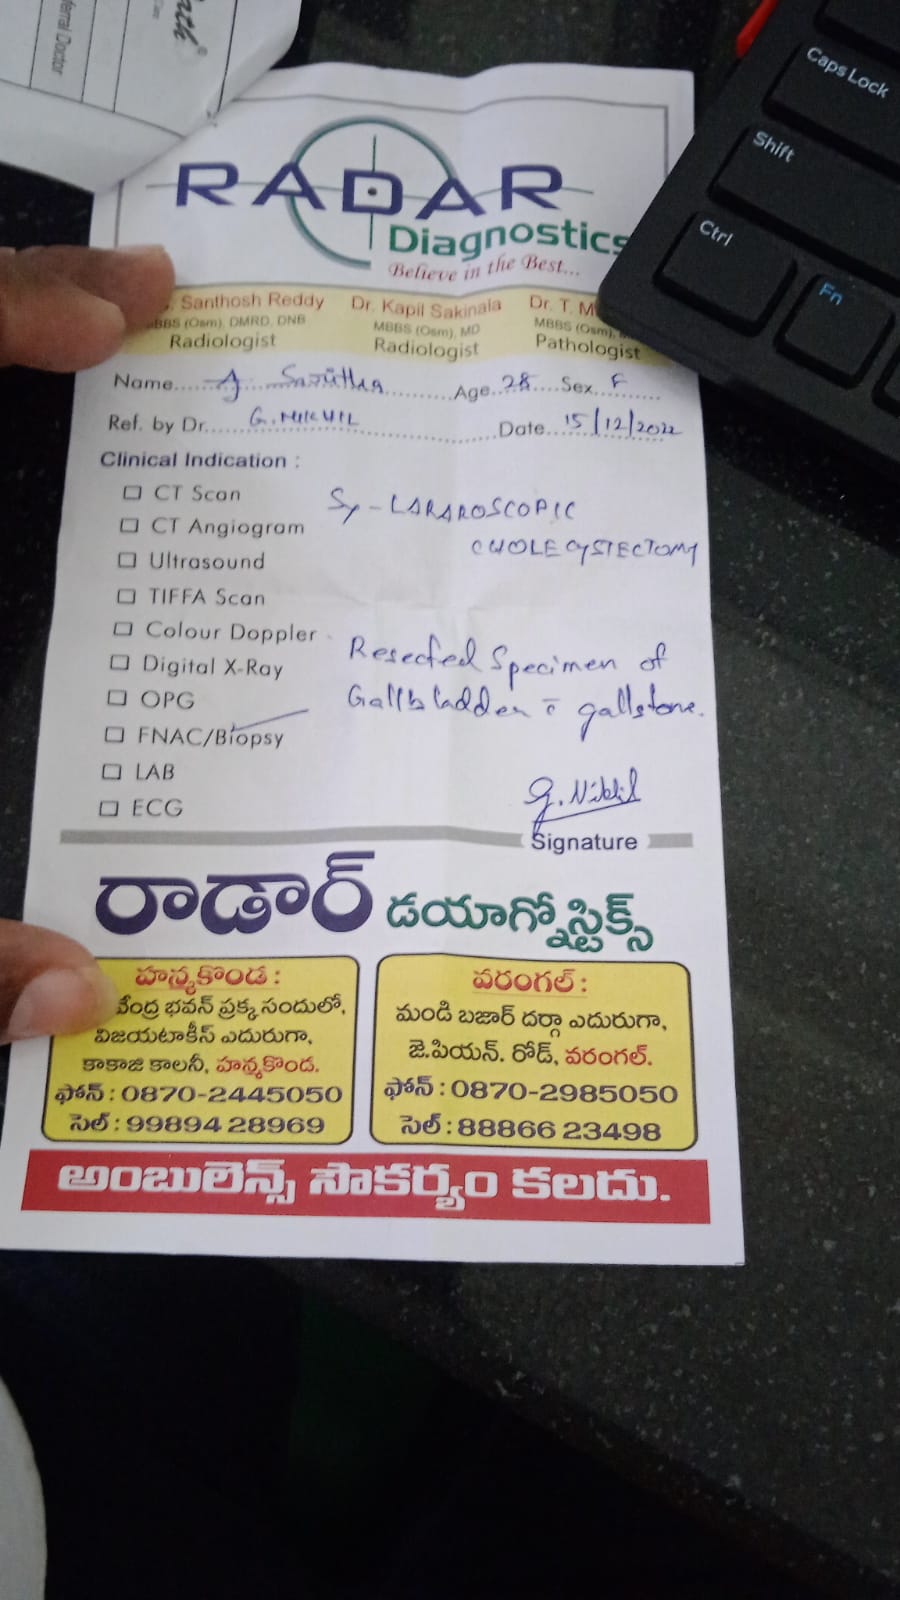 ath®
ferral Doctor
Caps Lock
Shift
Ctrl
Fn
RADAR
Diagnostics
Believe in the Best...
Santhosh Reddy
BBS (Osm), DMRD, DNB
Radiologist
Dr. Kapil Sakinala
MBBS (Osm), MD
Radiologist
Dr. T. M
MBBS (Osm),
Pathologist
Name.....A. Savitha..........Age..28....Sex..F......
Ref. by Dr.....G. NIKHIL..................Date...15/12/2022
Clinical Indication :
☐ CT Scan
☐ CT Angiogram
☐ Ultrasound
☐ TIFFA Scan
☐ Colour Doppler
☐ Digital X-Ray
☐ OPG
☐ FNAC/Biopsy
☐ LAB
☐ ECG
LAPAROSCOPIC
CHOLECYSTECTOMY
Resected Specimen of
Gallbladder c̄ gallstone.
G. Nikhil
Signature
రాడార్ డయాగ్నోస్టిక్స్
హన్మకొండ :
వేంద్ర భవన్ ప్రక్క సందులో,
విజయటాకీస్ ఎదురుగా,
కాకాజి కాలనీ, హన్మకొండ.
ఫోన్ : 0870-2445050
సెల్ : 99894 28969
వరంగల్ :
మండి బజార్ దర్గా ఎదురుగా,
జె.పియన్. రోడ్, వరంగల్.
ఫోన్ : 0870-2985050
సెల్ : 88866 23498
అంబులెన్స్ సౌకర్యం కలదు.